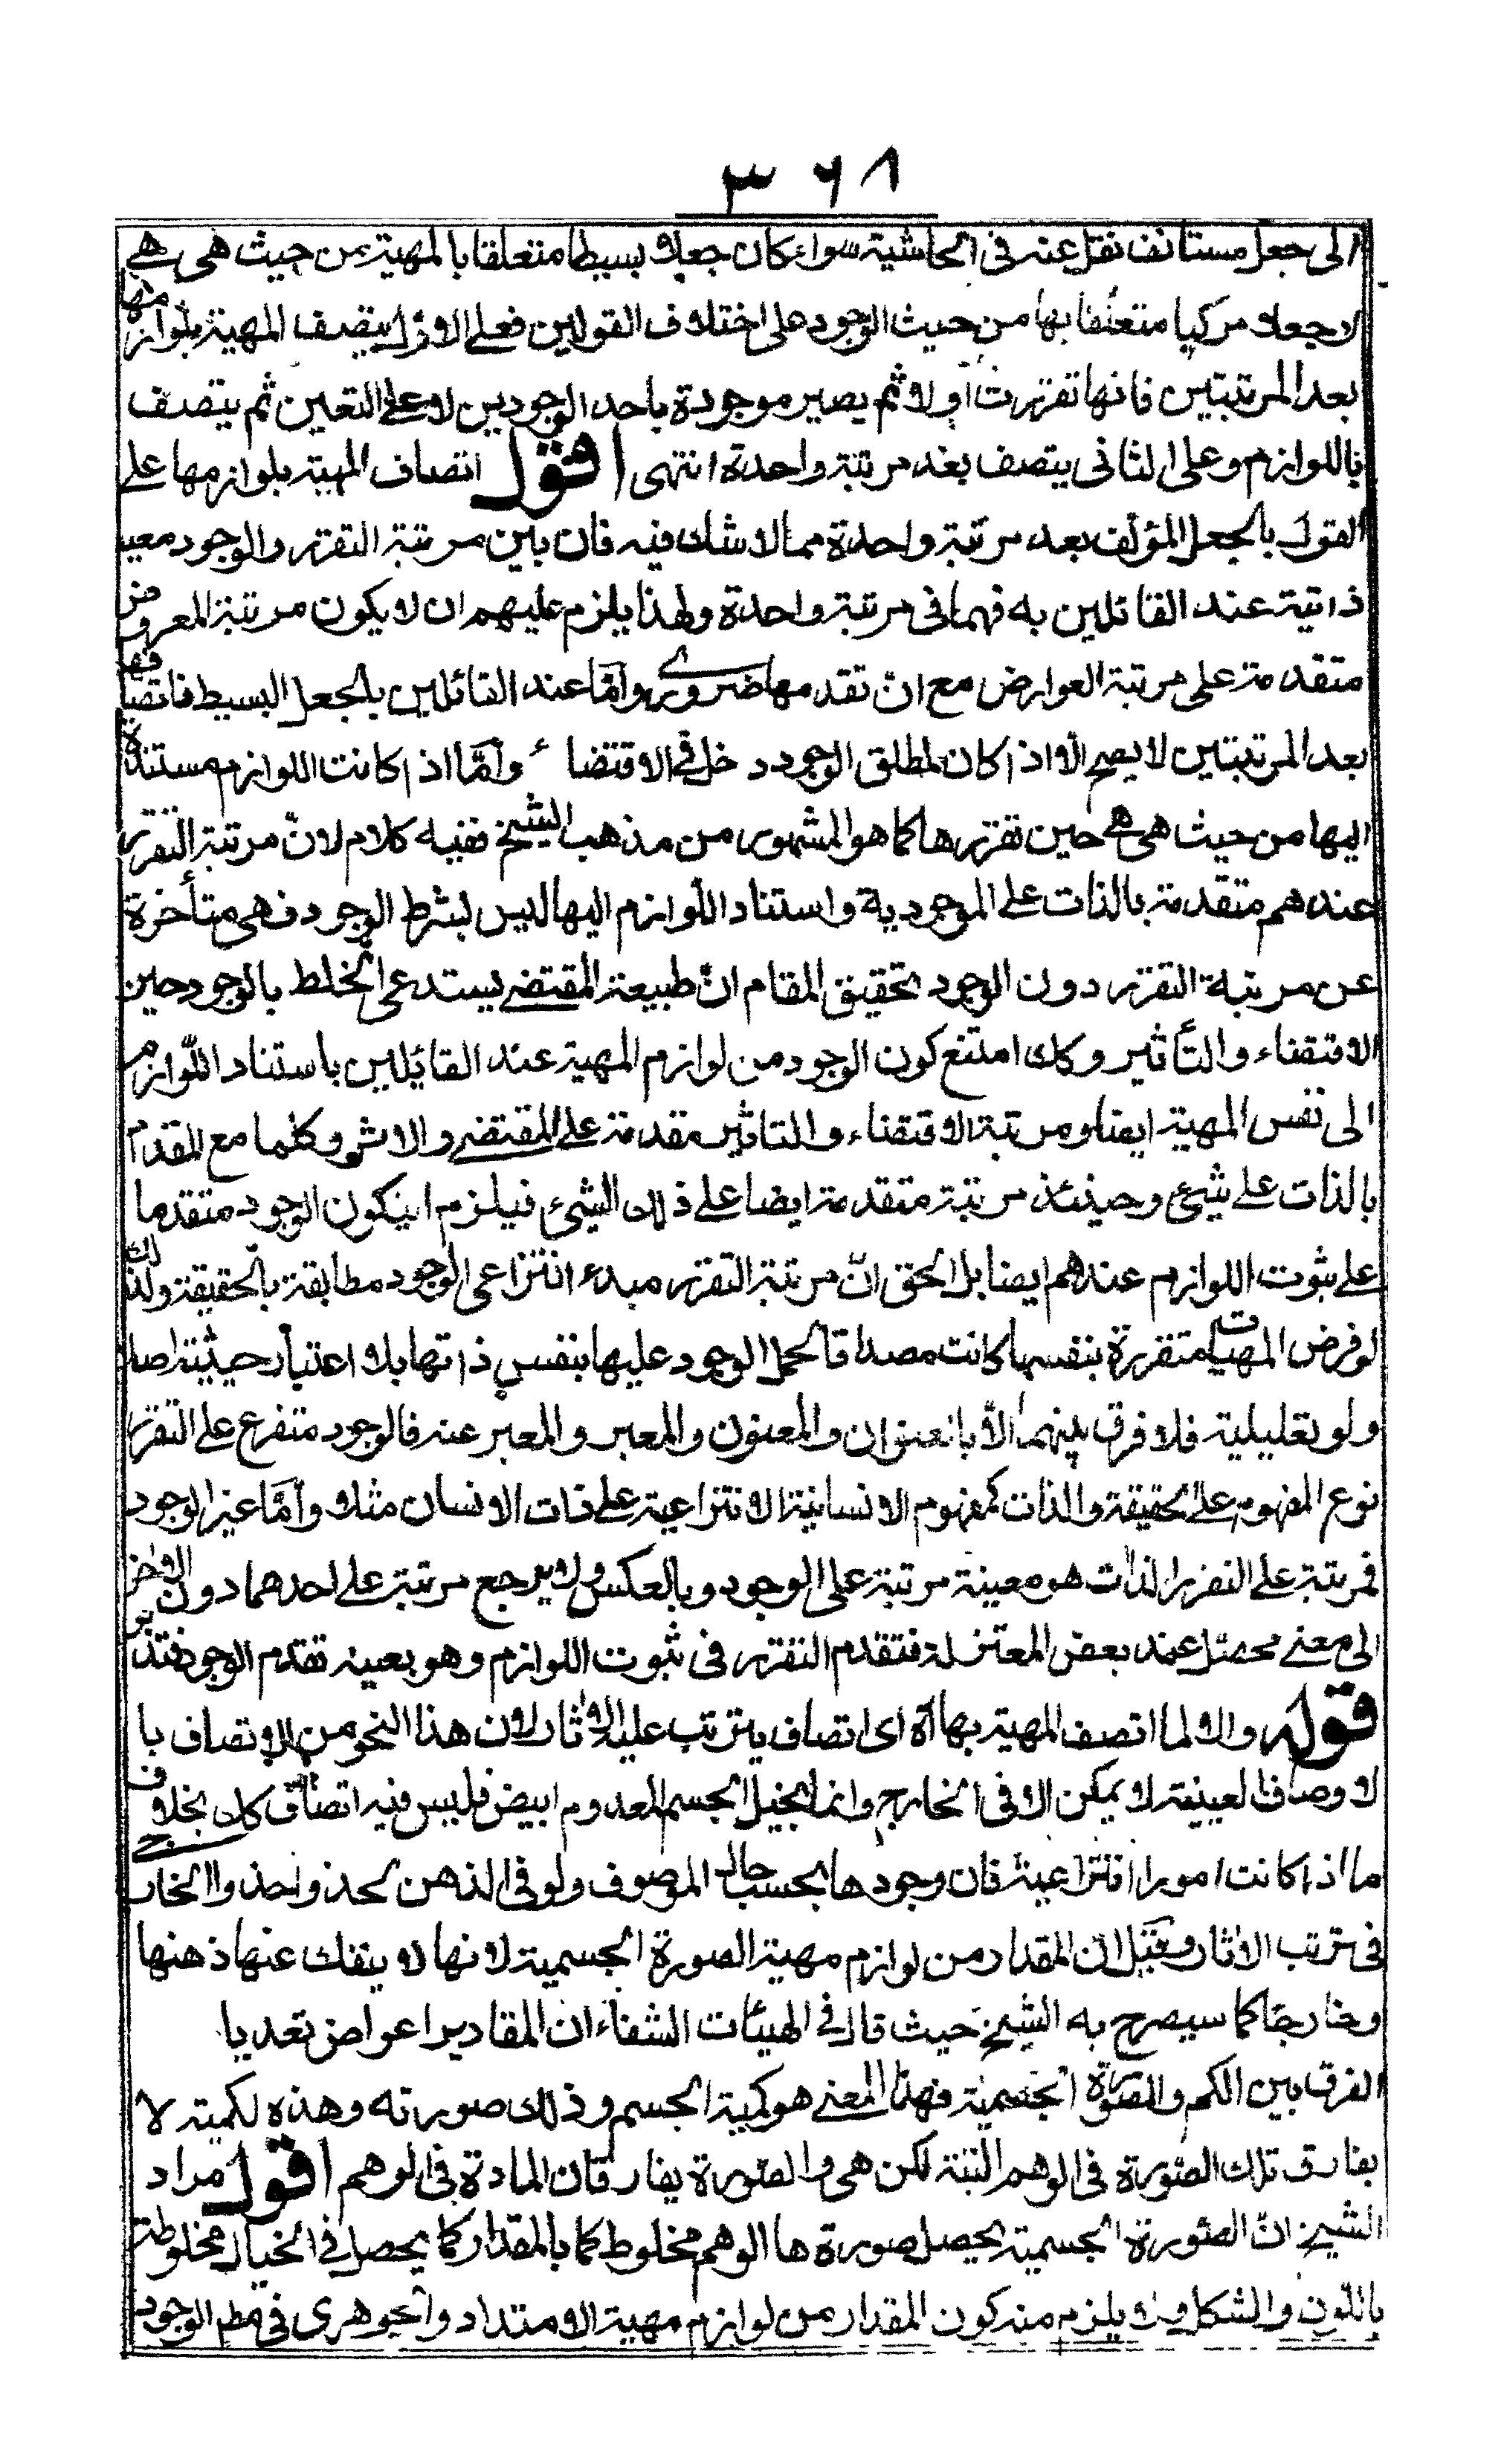 ٣٦٨
الى جعل مستانف نقل عنه فى الحاشية سواء كان جعلا بسيطا متعلقا بالمهية من حيث هى هى
لا جعلا مركبا متعلقا بها من حيث الوجود على اختلاف القولين فعلى الاول يتصف المهية بلوازمها
بعد المرتبتين فانها تقررت اولا ثم يصير موجودة باحد الوجودين لا على التعين ثم يتصف
باللوازم وعلى الثانى يتصف بعد مرتبة واحدة انتهى اقول اتصاف المهية بلوازمها على
القول بالجعل المؤلف بعد مرتبة واحدة مما لا شك فيه فان بين مرتبة التقرر والوجود معية
ذاتية عند القائلين به فهما فى مرتبة واحدة ولهذا يلزم عليهم ان لا يكون مرتبة المعروض
متقدمة على مرتبة العوارض مع انّ تقدمها ضرورى وامّا عند القائلين بالجعل البسيط فاتصافها
بعد المرتبتين لا يصح الا اذا كان لمطلق الوجود دخل فى الاقتضاء وامّا اذا كانت اللوازم مستندة
اليها من حيث هى هى حين تقررها كما هو المشهور من مذهب الشيخ ففيه كلام لانّ مرتبة التقرر
عندهم متقدمة بالذات على الموجودية واستناد اللوازم اليها ليس بشرط الوجود فهى متأخرة
عن مرتبة التقرر دون الوجود تحقيق المقام انّ طبيعة المقتضى يستدعى الخلط بالوجود حين
الاقتضاء والتأثير وكك امتنع كون الوجود من لوازم المهية عند القائلين باستناد اللّوازم
الى نفس المهية ايضا ومرتبة الاقتضاء والتاثير مقدمة على المقتضى والاثر وكلما مع المقدم
بالذات على شيئ وحينئذ مرتبة متقدمة ايضا على ذلك الشيئ فيلزم اينكون الوجود متقدما
على ثبوت اللوازم عندهم ايضا بل الحق انّ مرتبة التقرر مبدء انتزاعى الوجود مطابقة بالحقيقة ولذلك
لو فرض المهيات متقررة بنفسها كانت مصداقا لحمل الوجود عليها بنفس ذاتها بلا اعتبار حيثية اصلا
ولو تعليلية فلا فرق بينهما الّا بالعنوان والمعنون والمعبر والمعبر عنه فالوجود متفرع على التقرر
نوع المفهوم على الحقيقة والذات كمفهوم الانسانية الانتزاعية على ذات الانسان مثلا وأمّا غير الوجود
فمرتبة على التقرر الذات هو معينة مرتبة على الوجود وبالعكس ولا يرجع مرتبة على احدهما دون الاخر
الى معنى محصّل عند بعض المعتزلة فتقدم التقرر فى ثبوت اللوازم وهو بعينه تقدم الوجود فتدبر
قوله والا لما اتصف المهية بها آه اى اتصاف يترتب عليه الاثار لان هذا النحو من الاتصاف با
لاوصاف العينية لا يمكن الا فى الخارج وانما يخيل الجسم المعدوم ابيض فليس فيه اتصاف كك بخلاف
ما اذا كانت امورا انتزاعية فان وجودها بحسب حال الموصوف ولو فى الذهن كحذو واحد والخارج
فى ترتب الاثار وقيل ان المقدار من لوازم مهية الصورة الجسمية لانها لا ينفك عنها ذهنها
وخارجا كما سيصرح به الشيخ حيث قال فى الهيئات الشفاء ان المقادير اعواض تعد يا
الفرق بين الكم والصّورة الجسمية فهذا المعنى هو كمية الجسم وذلك صورته وهذه لكمية لا
يفارق تلك الصّورة فى الوهم البتة لكن هى والصّورة يفارقان المادة فى الوهم اقول مراد
الشيخ انّ الصّورة الجسمية يحصل صورة ها الوهم مخلوط كما بالمقدار كما يحصل فى الخيال مخلوطة
باللّون والشكل ولا يلزم منه كون المقدار من لوازم مهية الامتداد والجوهرى فى مطم الوجود